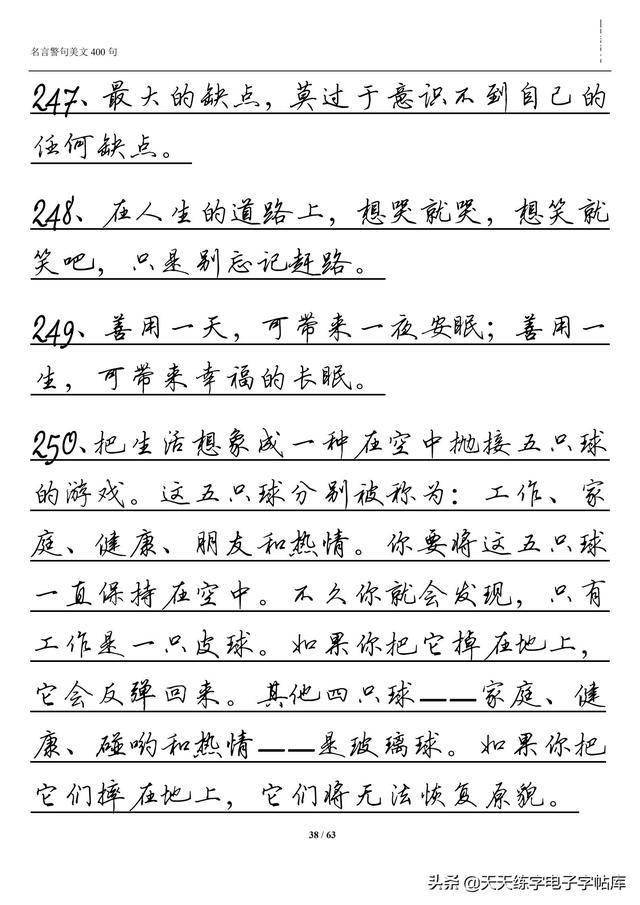 名言警句美文 400 句
247、最大的缺点，莫过于意识不到自己的
任何缺点。
248、在人生的道路上，想哭就哭，想笑就
笑吧，只是别忘记赶路。
249、善用一天，可带来一夜安眠；善用一
生，可带来幸福的长眠。
250、把生活想象成一种在空中抛接五只球
的游戏。这五只球分别被称为：工作、家
庭、健康、朋友和热情。你要将这五只球
一直保持在空中。不久你就会发现，只有
工作是一只皮球。如果你把它掉在地上，
它会反弹回来。其他四只球——家庭、健
康、碰哟和热情——是玻璃球。如果你把
它们摔在地上，它们将无法恢复原貌。
38 / 63
头条 @天天练字电子字帖库